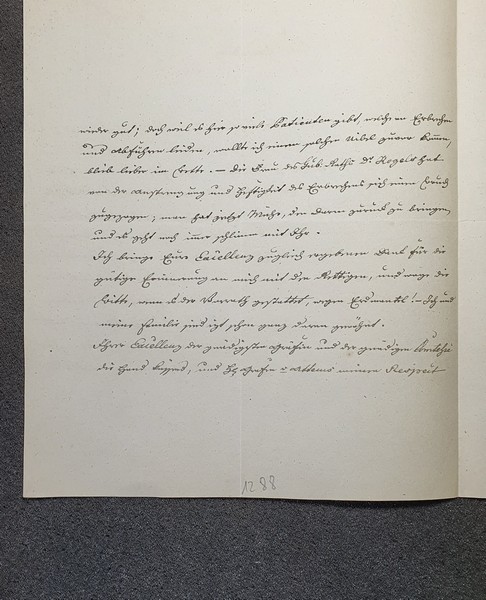 wieder gut; doch weil es hier so viele Patienten gibt, welche an Erbrechen
und Abführen leiden, wollte ich einem solchen Uibel zuvor kommen,
blieb lieber im Bette. — Die Frau des Gub. Raths Dr. Vogels hat
von der Anstrengung und Heftigkeit des Erbrechens sich einen Bruch
zugezogen; man hat jetzt Mühe, den Darm zurück zu bringen,
und es geht noch immer schlimm mit Ihr.
Ich bringe Eure Excellenz zugleich ergebenen Dank für die
gütige Erinnerung an mich mit den Rettigen, und wage die
Bitte, wenn es der Vorrath gestattet, wegen Erdmantl! – Ich und
meine Familie sind izt schon ganz daran gewöhnt.
Ihrer Excellenz der gnädigsten Gräfin und der gnädigen
die Hand küssend, und Gräfin v Attems meinen Respect
1288